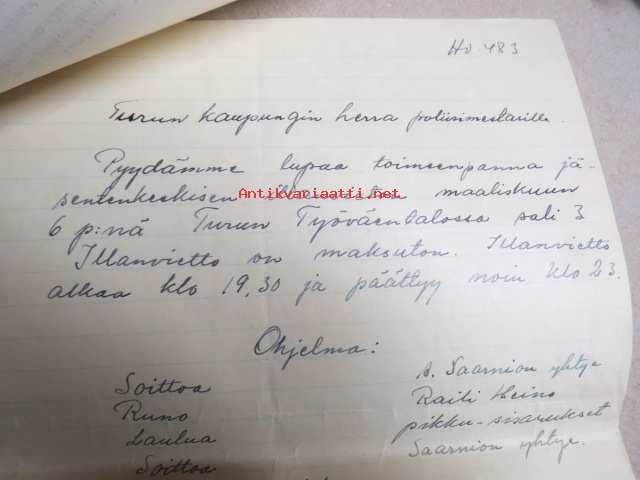 No 483
Turun kaupungin herra poliisimestarille.
Pyydämme lupaa toimeenpanna jä-
sentenkeskisen illanvieton maaliskuun
Antikvariaatti.net
6 p:nä Turun Työväentalossa sali 3
Illanvietto on maksuton. Illanvietto
alkaa klo 19,30 ja päättyy noin klo 23.
Ohjelma:
Soittoa A. Saarnion yhtye
Runo Raili Heino
Laulua pikku-sisarukset
Soittoa Saarnion yhtye.